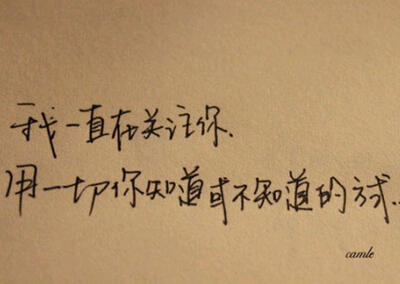 我一直在关注你.
用一切你知道或不知道的方式..
camle